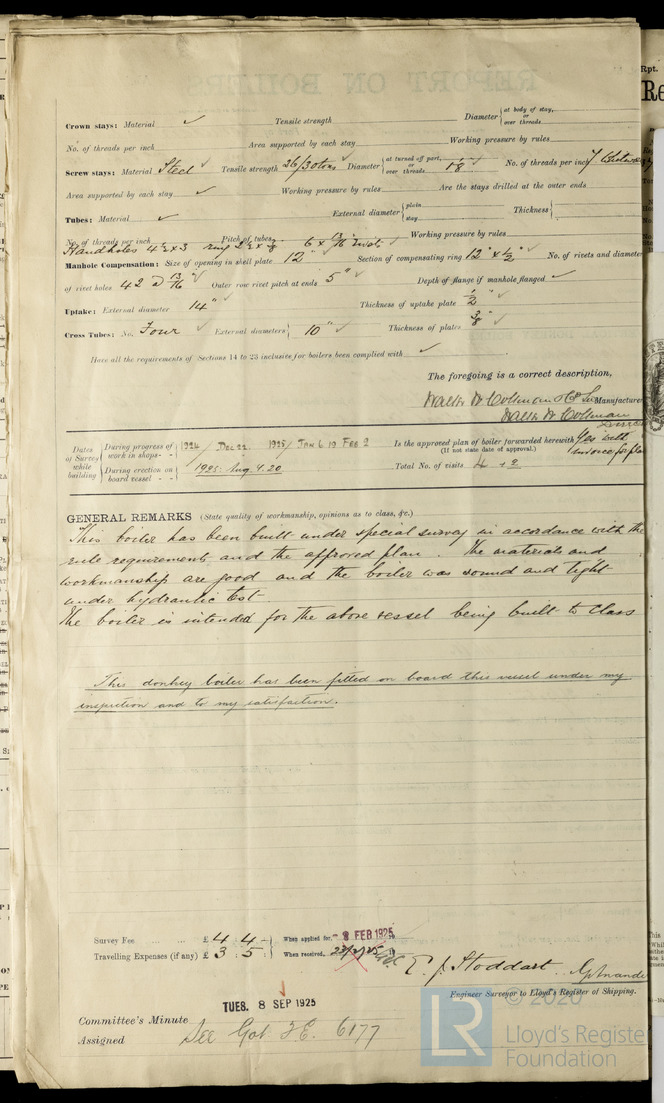 Crown stays: Material ✓ Tensile strength Diameter { at body of stay, or over threads
No. of threads per inch Area supported by each stay Working pressure by rules
Screw stays: Material Steel ✓ Tensile strength 26/30 tons ✓ Diameter { at turned off part, or over threads 1 1/8" ✓ No. of threads per inch
Area supported by each stay ✓ Working pressure by rules Are the stays drilled at the outer ends
Tubes: Material ✓ External diameter { plain stay Thickness {
No. of threads per inch Pitch of tubes Working pressure by rules
Handholes 4½ x 3 ring 2½ x 6 x 13/16"
Manhole Compensation: Size of opening in shell plate 12" Section of compensating ring 12" x ½" ✓ No. of rivets and diameter
of rivet holes 42 @ 13/16" ✓ Outer row rivet pitch at ends 5" ✓ Depth of flange if manhole flanged ✓
Uptake: External diameter 14" ✓ Thickness of uptake plate ½" ✓
Cross Tubes: No. Four ✓ External diameters { 10" ✓ Thickness of plates 3/8" ✓
Have all the requirements of Sections 14 to 23 inclusive for boilers been complied with ✓
The foregoing is a correct description,
Manufacturer
Dates of Survey while building { During progress of work in shops - - 1924 / Dec 22 1925 / Jan 6 19 Feb 2
During erection on board vessel - - - 1925. Aug. 4. 20.
Is the approved plan of boiler forwarded herewith Yes with
(If not state date of approval.) invoice for plan
Total No. of visits 4 + 2
GENERAL REMARKS (State quality of workmanship, opinions as to class, &c.)
This boiler has been built under special survey in accordance with the
rule requirements and the approved plan. The materials and
workmanship are good and the boiler was sound and tight
under hydraulic test.
The boiler is intended for the above vessel being built to class
This donkey boiler has been fitted on board this vessel under my
inspection and to my satisfaction.
Survey Fee ... ... £ 4 : 4 : - } When applied for, - 3 FEB 1925
Travelling Expenses (if any) £ 3 : 5 : } When received,
E. J. Stoddart
Engineer Surveyor to Lloyd's Register of Shipping.
TUES. 8 SEP 1925
Committee's Minute
Assigned See Got F.E. 6177
© 2020
LR Lloyd's Register
Foundation
Rpt.
Re